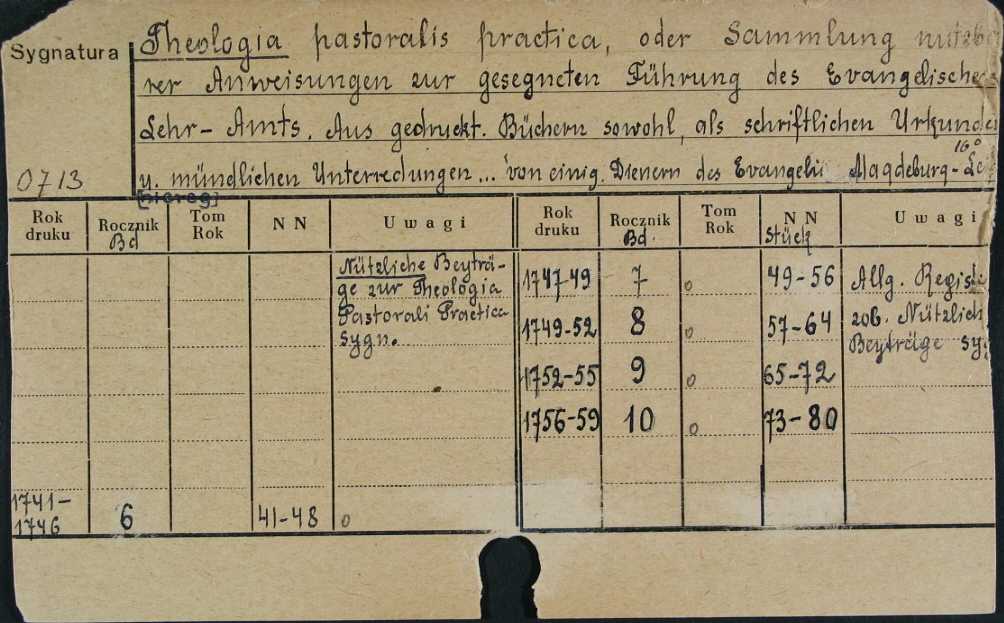 Sygnatura Theologia pastoralis practica, oder Sammlung nutzba
rer Anweisungen zur gesegneten Führung des Evangelische
Lehr-Amts. Aus gedruckt. Büchern sowohl, als schriftlichen Urkunde
16°
0713 u. mündlichen Unterredungen... von einig. Dienern des Evangelii Magdeburg-Le
Rok druku Rocznik Bd Tom Rok N N Uwagi Rok druku Rocznik Bd. Tom Rok N N Stück Uwagi
Nützliche Beyträ-
ge zur Theologia 1747-49 7 o 49-56 Allg. Regist
Pastorali Practica 1749-52 8 o 57-64 zob. Nützlich
Sygn. Beyträge Syg
1752-55 9 o 65-72
1756-59 10 o 73-80
1741-
1746 6 41-48 o